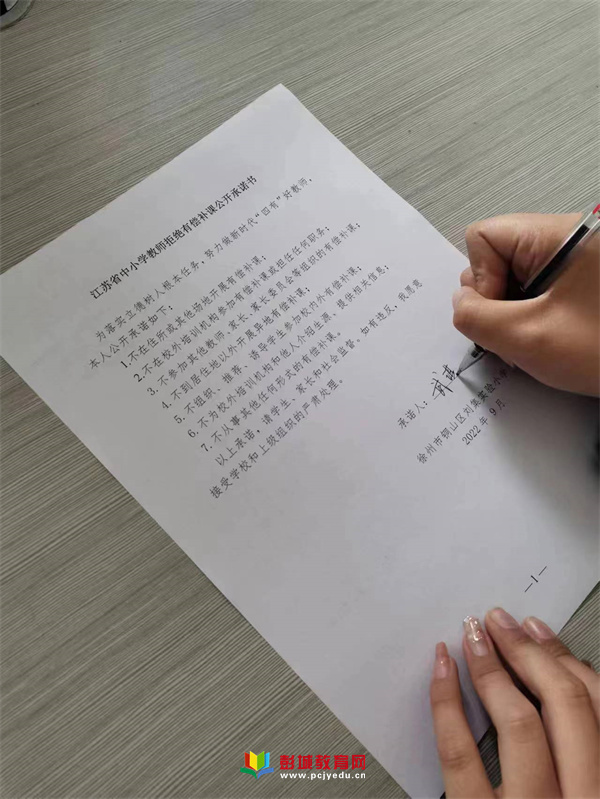 江苏省中小学教师拒绝有偿补课公开承诺书
为落实立德树人根本任务，努力做新时代“四有”好教师，
本人公开承诺如下：
1.不在住所或其他场地开展有偿补课；
2.不在校外培训机构参加有偿补课或担任任何职务；
3.不参加其他教师、家长、家长委员会等组织的有偿补课；
4.不到居住地以外开展异地有偿补课；
5.不组织、推荐、诱导学生参加校内外有偿补课；
6.不为校外培训机构和他人介绍生源、提供相关信息；
7.不从事其他任何形式的有偿补课。
以上承诺，请学生、家长和社会监督。如有违反，我愿意
接受学校和上级组织的严肃处理。
承诺人：
徐州市铜山区刘集实验小学
2022年9月
—1—
彭城教育网
www.pcjyedu.cn